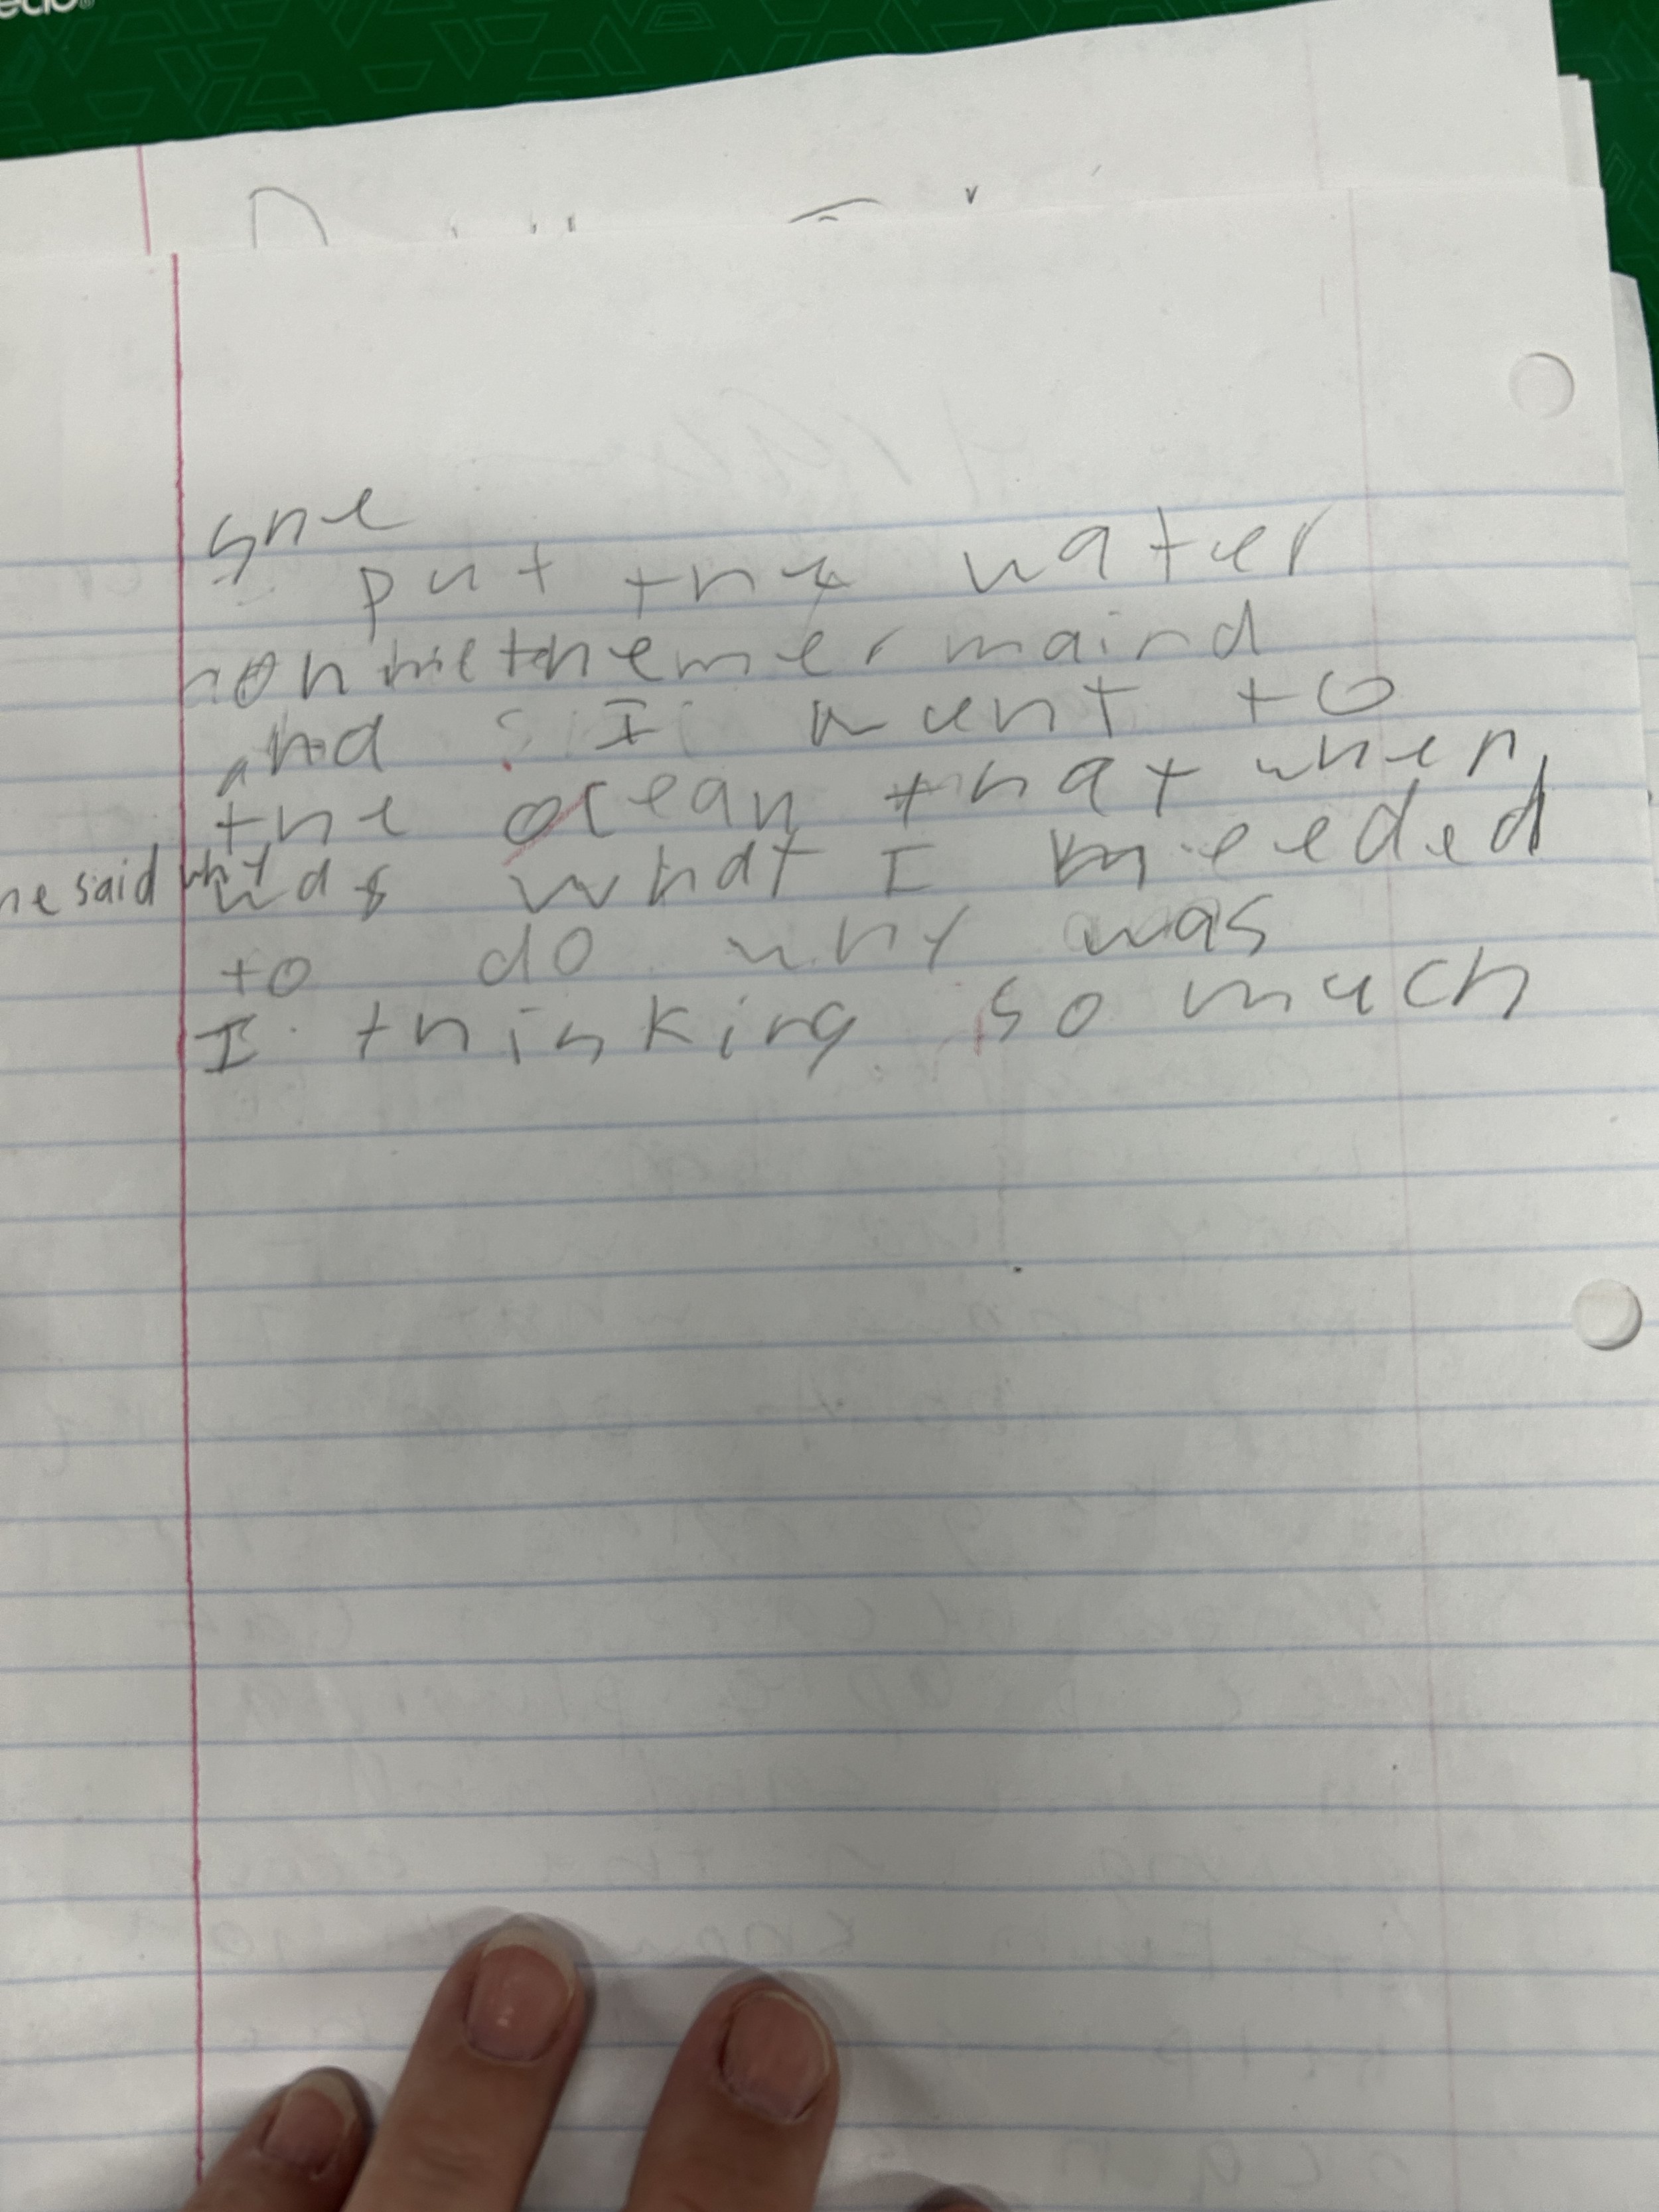 she
put the water
on me the mermaind
and I went to
the ocean that when
he said why was what I needed
to do why was
I thinking so much